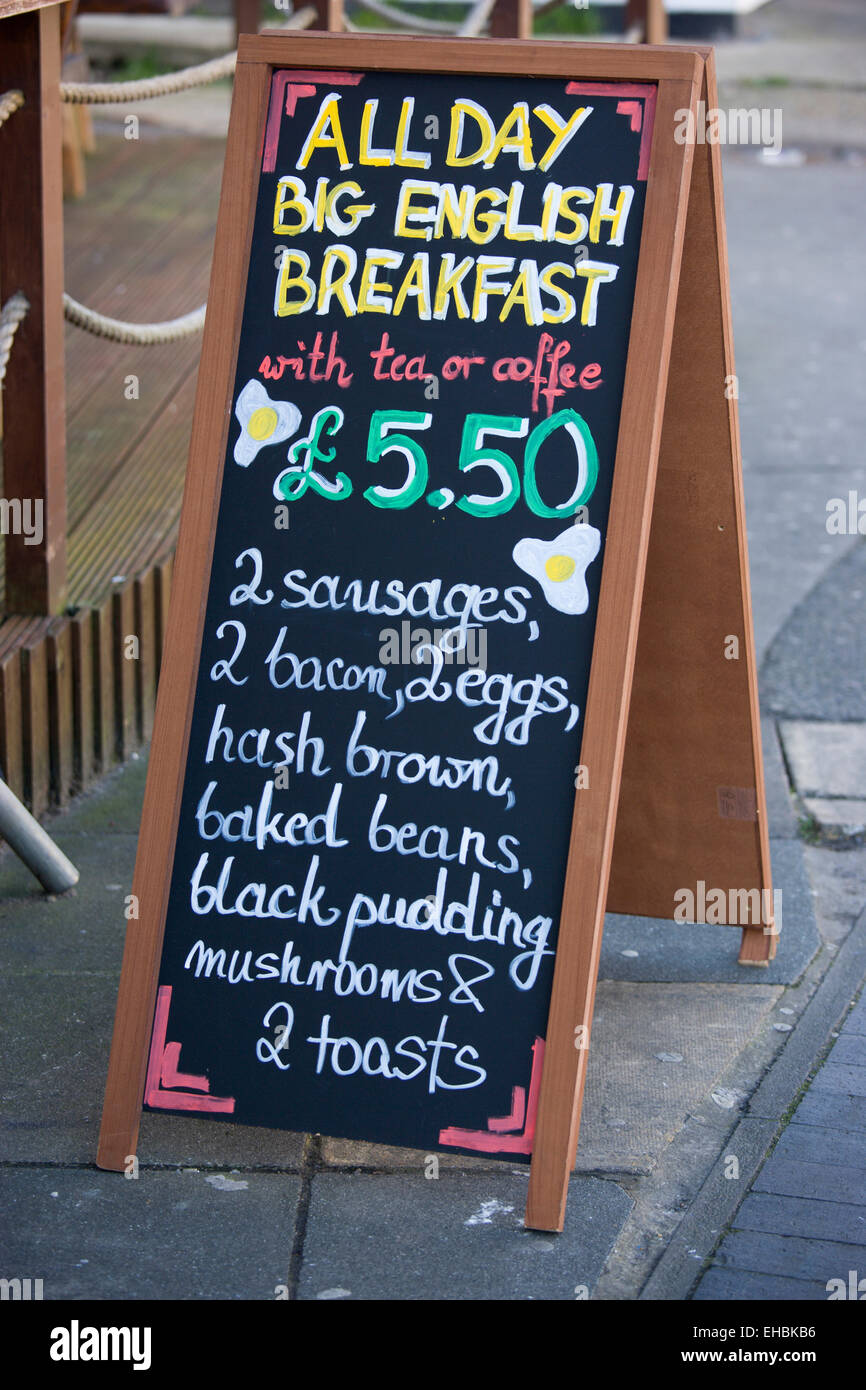 ALL DAY
BIG ENGLISH
BREAKFAST
with tea or coffee
£5.50
2 sausages,
2 bacon, 2 eggs,
hash brown,
baked beans,
black pudding
mushrooms &
2 toasts
alamy
Image ID: EHBKB6
www.alamy.com